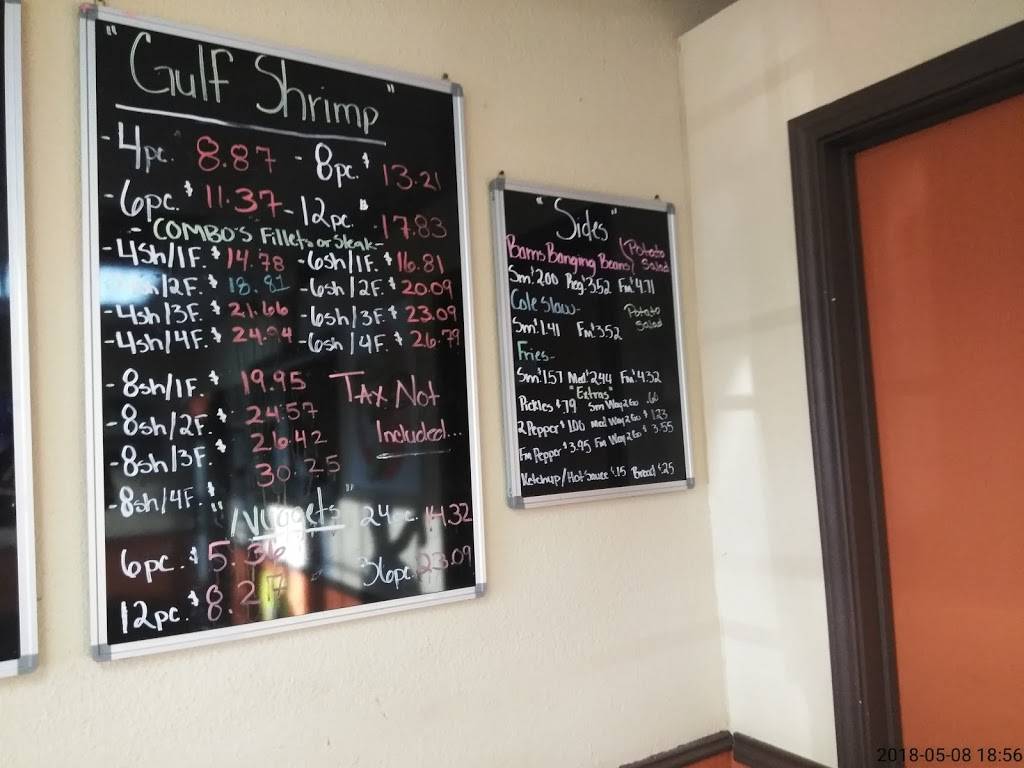 "Gulf Shrimp"
-4pc. 8.87 -8pc. $13.21
-6pc. $11.37 -12pc. $17.83
- COMBO'S Fillets or Steak-
-4sh/1F. $14.78 -6sh/1F. $16.81
sh/2F. $18.81 -6sh/2F. $20.09
-4sh/3F. $21.66 -6sh/3F. $23.09
-4sh/4F. $24.94 -6sh/4F. $26.79
-8sh/1F. $19.95 TAX Not
-8sh/2F. $24.57 Included...
-8sh/3F. 26.42
-8sh/4F. 30.25
"Nuggets" 24pc. 14.32
6pc. $5.36 36pc. 23.09
12pc. $8.27
"Sides"
Bams Banging Beans/ (Potato Salad
Sm. $2.00 Reg. 3.52 Fm. $4.71
Cole Slaw- Potato Salad
Sm. $1.41 Fm. $3.52
Fries-
Sm. $1.57 Med. $2.44 Fm. $4.32
"Extras"
Pickles $.79 Sm Way2Go .60
2 Pepper $1.00 Med Way2Go $1.23
Fm Pepper $3.95 Fm Way2Go $3.55
Ketchup/Hot Sauce $.15 Bread $.25
2018-05-08 18:56